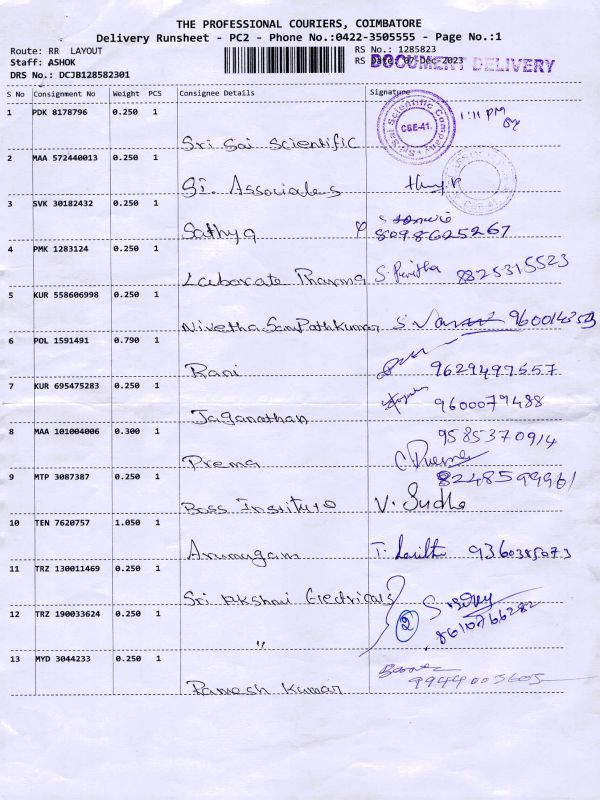 THE PROFESSIONAL COURIERS, COIMBATORE
Delivery Runsheet - PC2 - Phone No.:0422-3505555 - Page No.:1
Route: RR LAYOUT
RS No.: 1285823
Staff: ASHOK
RS Date: 07-Dec-2023
DOCUMENT DELIVERY
DRS No.: DCJB128582301
S No Consignment No Weight PCS Consignee Details Signature
1 PDK 8178796 0.250 1 Sri Sai Scientific 1:11 PM
Sri Sai Scientific Company
CBE-41.
2 MAA 572440013 0.250 1 Associates
CBE-41
3 SVK 30182432 0.250 1 Sathya 8098625267
4 PMK 1283124 0.250 1 Laborate Pharma 8825315523
5 KUR 558606998 0.250 1 Nivetha SamPathkumar
6 POL 1591491 0.790 1 Rani 9629497557
7 KUR 695475283 0.250 1 Jaganathan 9600079488
8 MAA 101004006 0.300 1 Prema 9585370914
8248599961
9 MTP 3087387 0.250 1 Boss Institute V. Sudha
10 TEN 7620757 1.050 1 Arumugam 9360385073
11 TRZ 130011469 0.250 1 Sri Electricals
12 TRZ 190033624 0.250 1 " 2 8610766282
13 MYD 3044233 0.250 1 Ramesh Kumar 9944005605